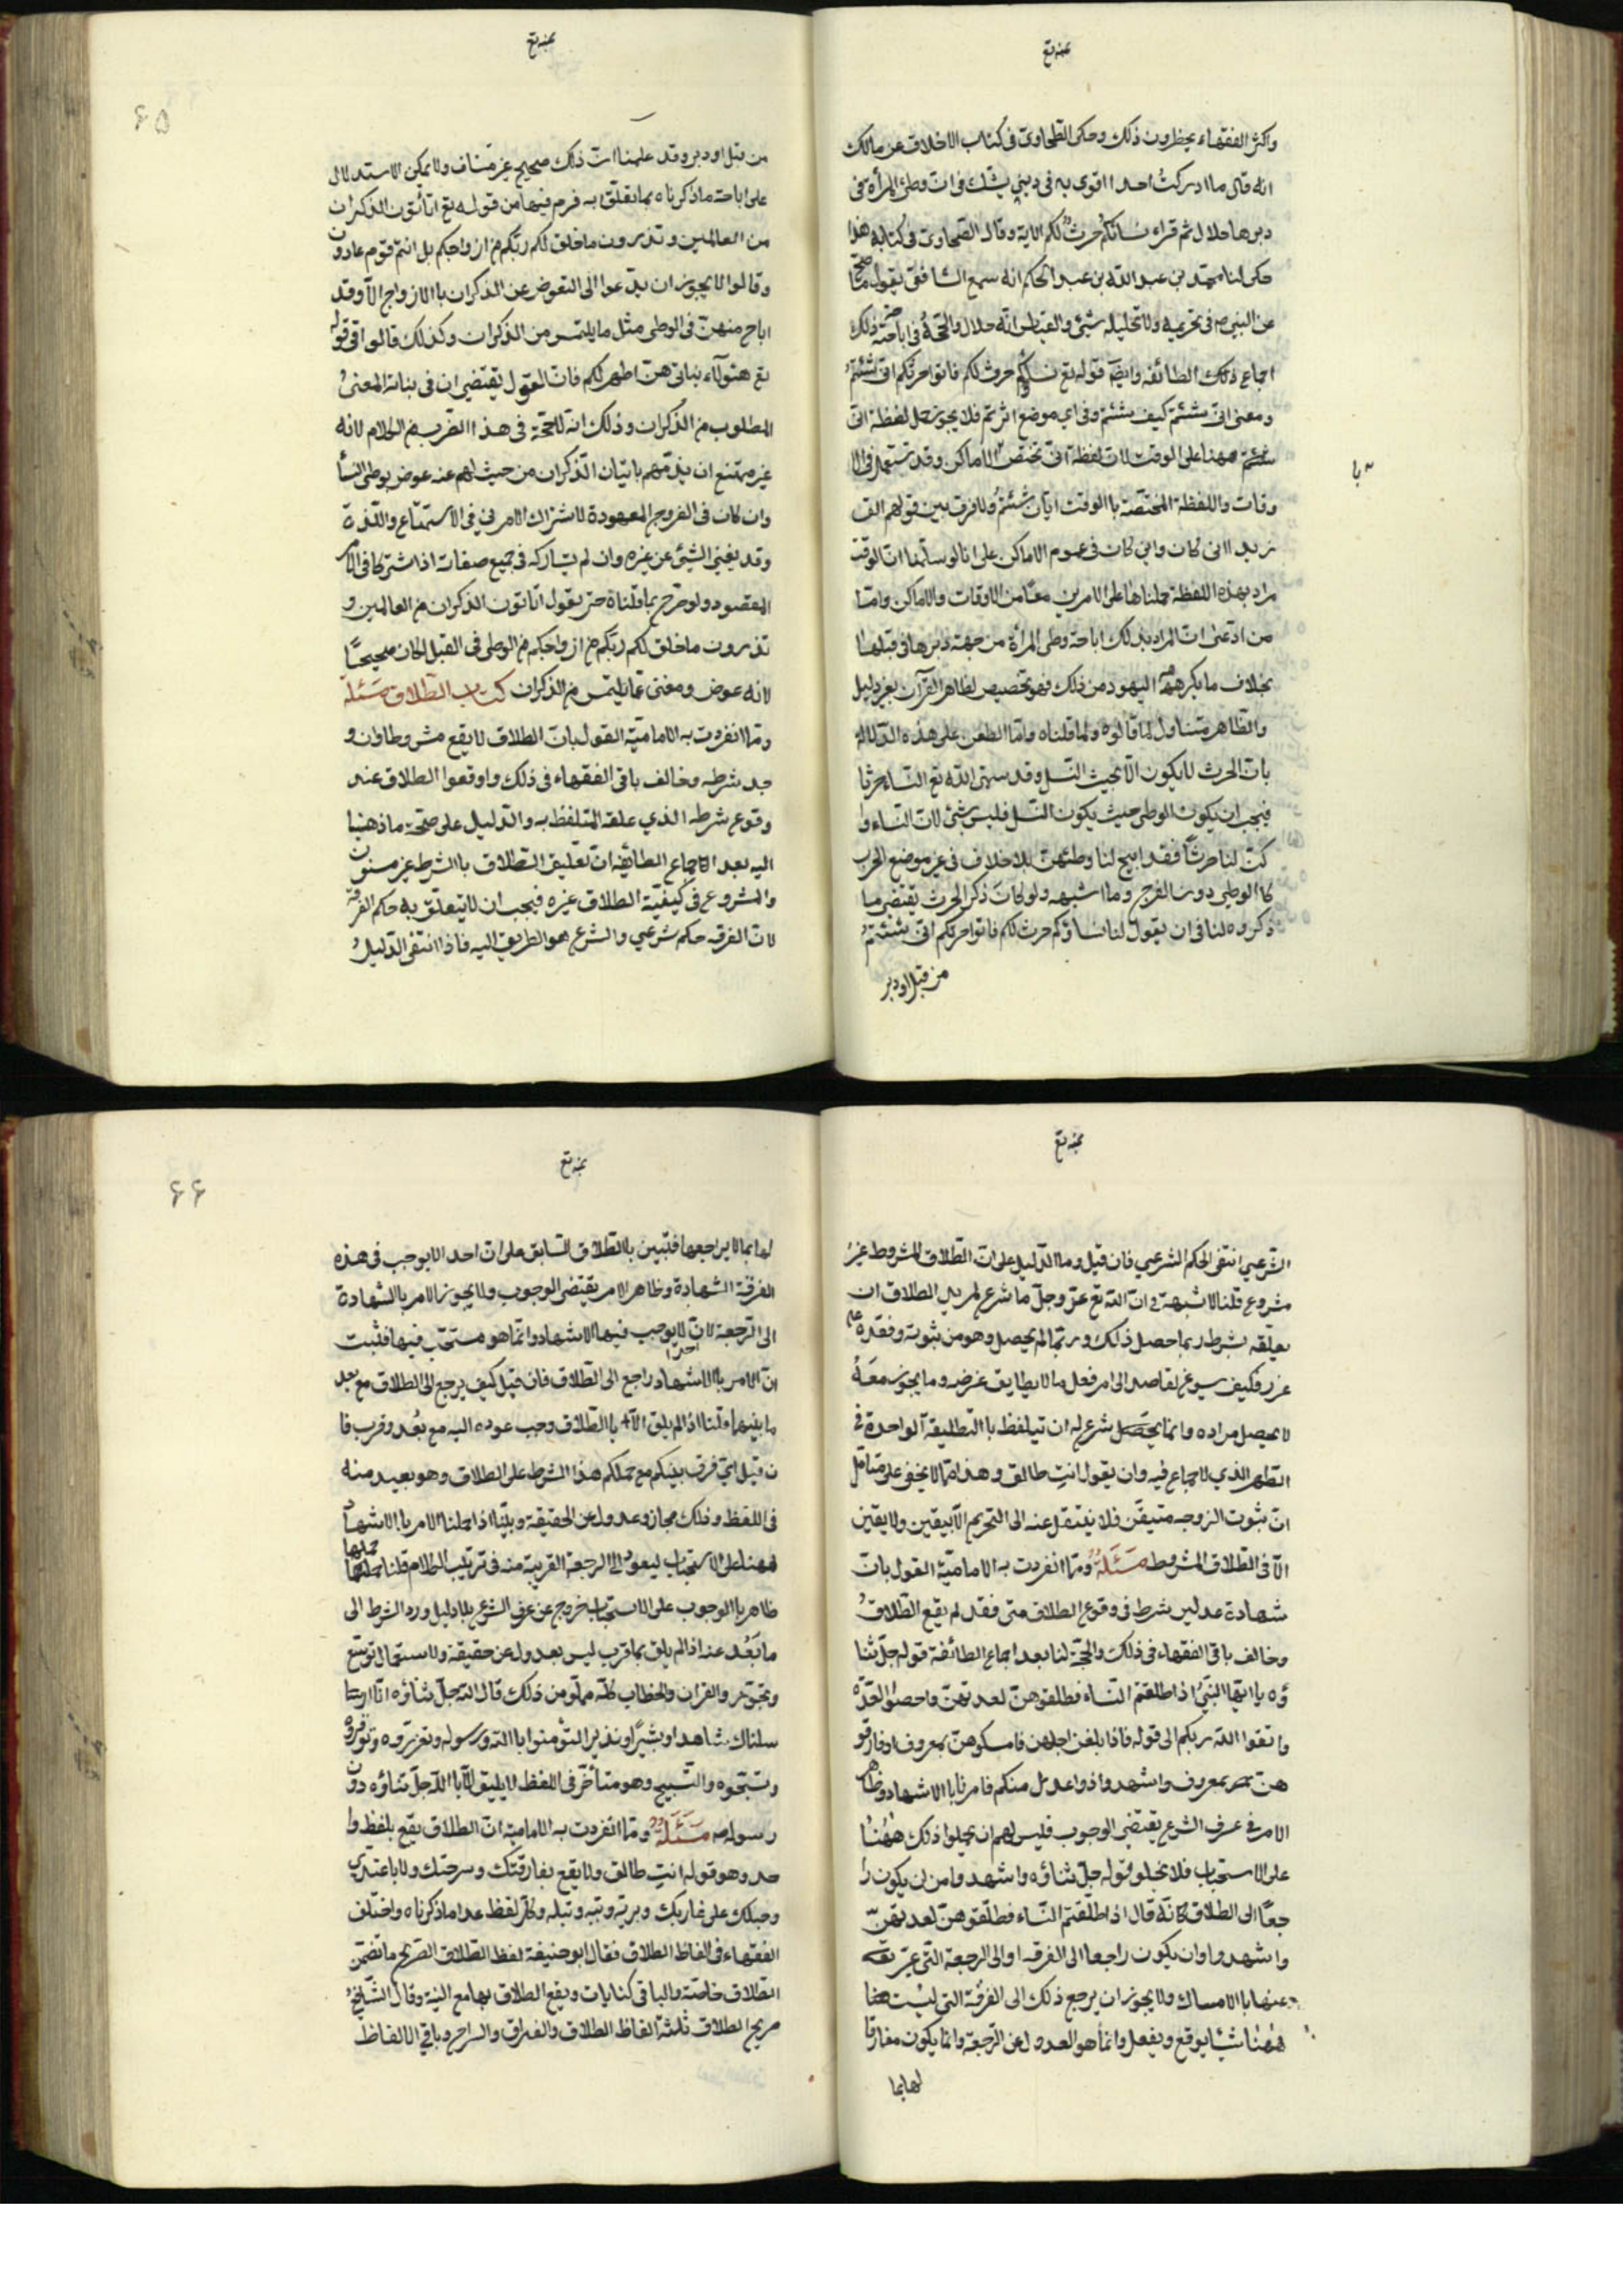 واكثر الفقهاء يحظرون ذلك وحكى الطحاوى فى كتاب الاختلاف عن مالك
انه قال ما ادركتُ احدا اقوى به فى دينى يشك فى انّ وطى المرأة فى
دبرها حلال ثم قراء نساؤكم حُرثٌ لكم الاية وقال الطحاوى فى كتابه هذا
حكى لنا محمد بن عبد الله بن عبد الحكم انه سمع الشافعى يقول ما صحّ
عن النبى ص فى تحريمه ولا تحليله شئ والقياس انّه حلال والحجّة فى اباحة ذلك
اجماع ذلك الطائفه وايضًا قوله تع نساؤكم حرث لكم فاتوا حرثكم انى شئتم
ومعنى انّى شئتم كيف شئتم وفى اى موضع اثرتم فلا يجوز حمل لفظة انّى
شئتم ههنا على الوقت لانّ لفظة انّى تختصّ الاماكن وقد تستعمل فى الا
وقات واللفظة المختصّة بالوقت ايّان شئتم ولا فرق بين قولهم الق
زيدا انى كان واين كان فى عموم الاماكن على انا لو سلّمنا انّ الوقت
مراد بهذه اللفظة حملناها على الامرين معًا من الاوقات والاماكن وامّا
من ادّعى انّ المراد بذلك اباحة وطى المرأة من جهة دبرها فى قبلها
بخلاف ما يكرهه اليهود من ذلك فهو تخصيص لظاهر القرآن بغير دليل
والظاهر متناول لما قالوه ولما قلناه وامّا الطعن على هذه الدلالة
بانّ الحرث لا يكون الّا بحيث النسل وقد سمّى الله تع النساء حرثا
فيجب ان يكون الوطى حيث يكون النسل فليس بشئ لانّ النساء وا
كنّ لنا حرثًا فقد ابيح لنا وطئهنّ بلا خلاف فى غير موضع الحرث
كالوطى دون الفرج وما اشبهه ولو كان ذكر الحرث يقتضى ما
ذكروه لتنافى ان يقول لنا نساؤكم حرث لكم فاتوا حرثكم انّى شئتم
من قبل او دبر
من قبل او دبر وقد علمنا انّ ذلك صحيح غير متناف ولا يمكن الاستدلال
على اباحة ما ذكرناه بما يتعلّق به قوم فيها من قوله تع اتأتون الذكران
من العالمين وتذرون ما خلق لكم ربّكم من ازواجكم بل انتم قوم عادون
وقالوا لا يجوز ان يدعوا الى التعوض عن الذكران بالازواج الّا وقد
اباح منهنّ فى الوطى مثل ما يلتمس من الذكران وكذلك قالوا فى قوله
تع هؤلاء بناتى هنّ اطهر لكم فانّ القول يقتضى ان فى بناته المعنى
المطلوب من الذكران وذلك انّه لا حجّة فى هذا الضرب من الكلام لانه
غير ممتنع ان يذمّهم باتيان الذّكران من حيث لهم عنه عوض بوطى النسأ
وان كان فى الفروج المعهودة لاشتراك الامرين فى الاستمتاع واللّذة
وقد يغنى الشئ عن غيره وان لم يشاركه فى جميع صفاته اذا اشتركا فى الامر
المقصود ولو صرّح بما قلناه حتى يقول اتاتون الذكران من العالمين و
تذرون ما خلق لكم ربّكم من ازواجكم من الوطى فى القبل لكان صحيحًا
لانه عوض ومغنى عمّا يلتمس من الذكران كتاب الطلاق مسئلة
وممّا انفردت به الاماميّة القول بانّ الطلاق لا يقع مشروطا وان و
جد شرطه وخالف باقى الفقهاء فى ذلك واوقعوا الطلاق عند
وقوع شرطه الذى علقه المتلفظ به والدليل على صحّة ما ذهبنا
اليه بعد اجماع الطائفه انّ تعليق الطلاق بالشرط غير مسنون
والمشروع فى كيفيّة الطلاق غيره فيجب ان لا يتعلّق به حكم الفرقة
لانّ الفرقه حكم شرعى والشرع هو الطريق اليه فاذا انتفى الدّليل
الشرعى انتفى الحكم الشرعى فان قيل وما الدليل على انّ الطلاق المشروط غير
مشروع قلنا لا شبهة فى انّ الله تع عزّ وجلّ ما شرع لمريد الطلاق ان
يعلّقه بشرط ربما حصل ذلك وربّما لم يحصل وهو من ثبوته وفقده على
غرر فكيف سوغ لقاصد الى امر فعل ما لا يطابق غرضه وما يجوز معَهُ
لا يحصل مراده وانما يحصل شرع له ان تيلفظ بالتطليقة الواحدة فى
الطهر الذى لا جماع فيه وان يقول انتِ طالق وهذا ممّا لا يخفى على متأمّل
انّ ثبوت الزوجه متيقّن فلا ينتقل عنه الى التحريم الّا بيقين ولا يقين
الّا فى الطلاق المشروط مسئلةٌ وممّا انفردت به الاماميّة القول بانّ
شهادة عدلين شرط فى وقوع الطلاق متى فقد لم يقع الطلاقُ
وخالف باقى الفقهاء فى ذلك والحجّة لنا بعد اجماع الطائفة قوله جلّ ثنا
ؤه يا ايها النبىُ اذا طلقتم النساء فطلقوهنّ لعدتهنّ واحصوا العدّة
واتقوا الله ربكم الى قوله فاذا بلغن اجلهن فامسكوهنّ بمعروف او فارقو
هنّ بمعروف واشهدوا ذوا عدل منكم فامرنا بالاشهاد وظاهر
الامر فى عرف الشرع يقتضى الوجوب فليس لهم ان يحملوا ذلك ههُنا
على الاستحباب فلا يخلو قوله جلّ ثناؤه واشهدوا من ان يكون را
جعًا الى الطلاق كانّه قال اذا طلّقتم النّساء فطلّقوهنّ لعدتهنّ
واشهدوا وان يكون راجعا الى الفرقه او الى الرجعة التى عبّر تع
عنها بالامساك ولا يجوز ان يرجع ذلك الى الفرقة التى ليست
ههنا شيئا يوقع ويفعل وانما هو العدول عن الرّجعة وانما يكون مفارقا
لها بما
لها بما لا يراجعها فتبين بالطلاق السابق على انّ احدا لا يوجب فى هذه
الفرقة الشهادة وظاهر الامر يقتضى الوجوب ولا يجوز الامر بالشهادة
الى الرجعة لانّ احدا لا يوجب فيها الاشهاد وانّما هو مستحبّ فيها فثبت
انّ الامر بالاشهاد راجع الى الطلاق فان قيل كيف يرجع الى الطلاق مع بعد
ما بينهما قلنا اذا لم يلق الّا بالطلاق وجب عوده اليه مع بُعد وقرب فا
ن قيل اىّ فرق بينكم مع حملكم هذا الشرط على الطلاق وهو بعيد منه
فى اللفظ وذلك مجاز وعدول عن الحقيقة وبيننا اذا حملنا الامر بالاشهاد
ههنا على الاستحباب ليعود الى الرجعة القريبة منه فى ترتيب الكلام قلنا حملها
ظاهر بالوجوب على الاستحباب خروج عن عرف الشرع بلا دليل ورد الشرط الى
ما بَعُد عنه اذا لم يلق بما قرب ليس بعدول عن حقيقة ولا استعمال توسّع
وتجوّز والقران والخطاب كلّه مملوّ من ذلك قال الله جلّ ثناؤه انّا ار
سلناك شاهدا وبشيرًا ونذيرا لتؤمنوا بالله ورسوله وتعزروه وتوقروه
وتسبّحوه والتسبيح وهو متأخّر فى اللفظ لا يليق الّا بالله جلّ ثناؤه دون
رسوله ص مسئلة وممّا انفردت به الاماميّة انّ الطلاق يقع بلفظ وا
حد وهو قوله انتِ طالق ولا يقع بفارقتك وسرحتك ولا باعتدى
وحبلك على غاربك وبرية وبتة وبتله وكلّ لفظ عدا ما ذكرناه واختلف
الفقهاء فى الفاظ الطلاق فقال ابو حنيفة لفظ الطلاق الصّريح ما تضمّن
الطلاق خاصّة والباقى كنايات ويقع الطلاق بها مع النيّة وقال الشافعىُ
صريح الطلاق ثلثة الفاظ الطلاق والفراق والسراح وباقى الالفاظ
۶۵
۶۶